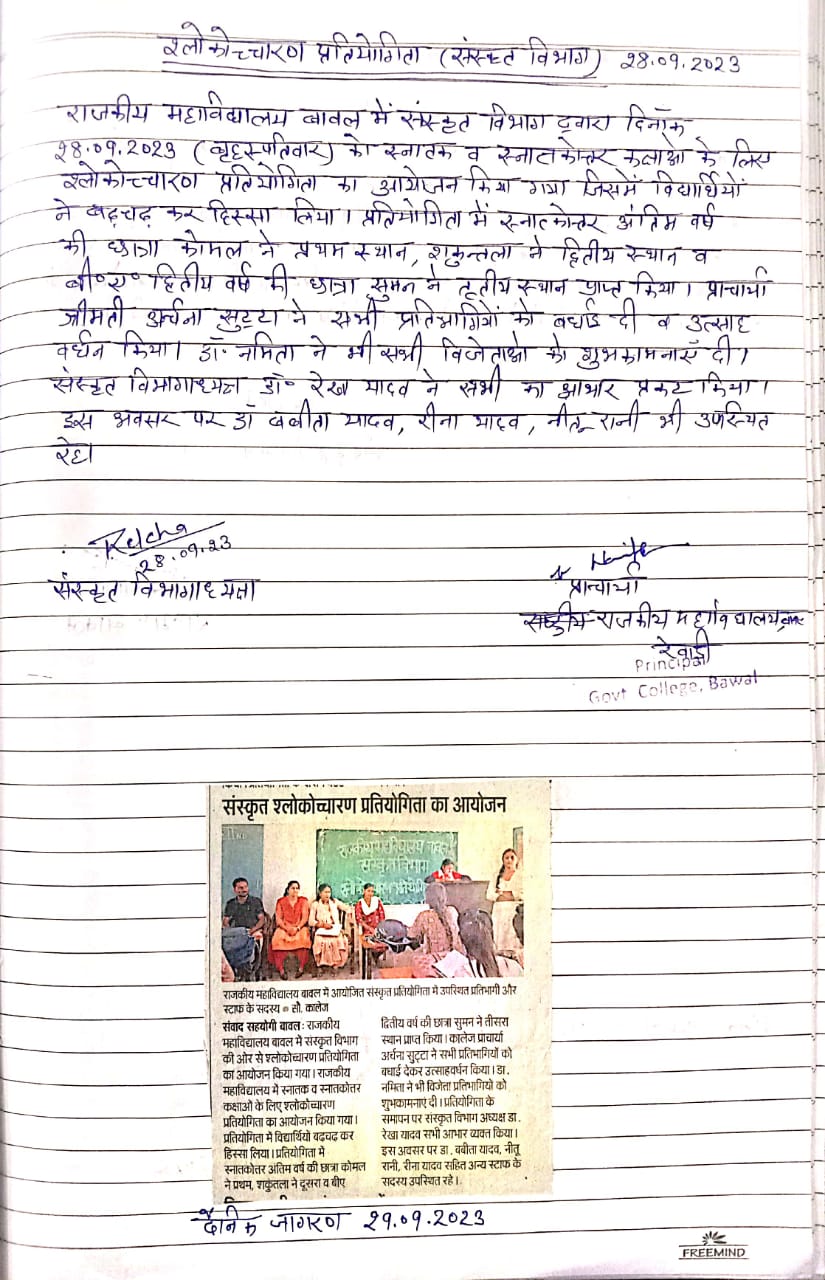 श्लोकोच्चारण प्रतियोगिता (संस्कृत विभाग) 28.09.2023
राजकीय महाविद्यालय बावल में संस्कृत विभाग द्वारा दिनाँक
28.09.2023 (वृहस्पतिवार) को स्नातक व स्नातकोत्तर कक्षाओं के लिए
श्लोकोच्चारण प्रतियोगिता का आयोजन किया गया जिसमें विद्यार्थियों
ने बढ़चढ़ कर हिस्सा लिया। प्रतियोगिता में स्नातकोत्तर अंतिम वर्ष
की छात्रा कोमल ने प्रथम स्थान, शकुन्तला ने द्वितीय स्थान व
बी॰ए॰ द्वितीय वर्ष की छात्रा सुमन ने तृतीय स्थान प्राप्त किया। प्राचार्या
श्रीमती अर्चना सुट्टा ने सभी प्रतिभागियों को बधाई दी व उत्साह
वर्धन किया। डॉ॰ नमिता ने भी सभी विजेताओं को शुभकामनाएँ दी।
संस्कृत विभागाध्यक्षा डॉ॰ रेखा यादव ने सभी का आभार प्रकट किया।
इस अवसर पर डॉ बबीता यादव, रीना यादव, नीतू रानी भी उपस्थित
रहे।
Rekha
28.09.23
संस्कृत विभागाध्यक्षा
प्राचार्या
राजकीय महाविद्यालय
रेवाड़ी
Principal
Govt College, Bawal
संस्कृत श्लोकोच्चारण प्रतियोगिता का आयोजन
राजकीय महाविद्यालय बावल
संस्कृत विभाग
श्लोकोच्चारण प्रतियोगिता
राजकीय महाविद्यालय बावल में आयोजित संस्कृत प्रतियोगिता में उपस्थित प्रतिभागी और
स्टाफ के सदस्य ● सौ. कालेज
संवाद सहयोगी बावल: राजकीय
महाविद्यालय बावल में संस्कृत विभाग
की ओर से श्लोकोच्चारण प्रतियोगिता
का आयोजन किया गया। राजकीय
महाविद्यालय में स्नातक व स्नातकोत्तर
कक्षाओं के लिए श्लोकोच्चारण
प्रतियोगिता का आयोजन किया गया।
प्रतियोगिता में विद्यार्थियो बढ़चढ़ कर
हिस्सा लिया। प्रतियोगिता में
स्नातकोतर अंतिम वर्ष की छात्रा कोमल
ने प्रथम, शकुंतला ने दूसरा व बीए
द्वितीय वर्ष की छात्रा सुमन ने तीसरा
स्थान प्राप्त किया। कालेज प्राचार्या
अर्चना सुट्टा ने सभी प्रतिभागियों को
बधाई देकर उत्साहवर्धन किया। डा.
नमिता ने भी विजेता प्रतिभागियो को
शुभकामनाएं दी। प्रतियोगिता के
समापन पर संस्कृत विभाग अध्यक्ष डा.
रेखा यादव सभी आभार व्यक्त किया।
इस अवसर पर डा. बबीता यादव, नीतू
रानी, रीना यादव सहित अन्य स्टाफ के
सदस्य उपस्थित रहे।
दैनिक जागरण 29.09.2023
FREEMIND